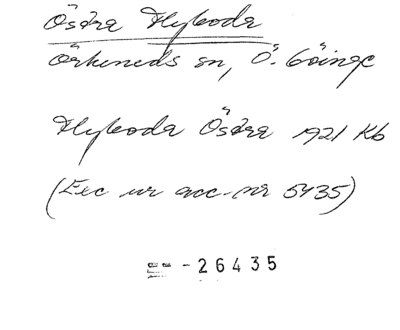 Östra Flyboda
Örkeneds sn, Ö. Göinge
Flyboda Östra 1921 Kb
(Exc ur acc.nr 5435)
-26435